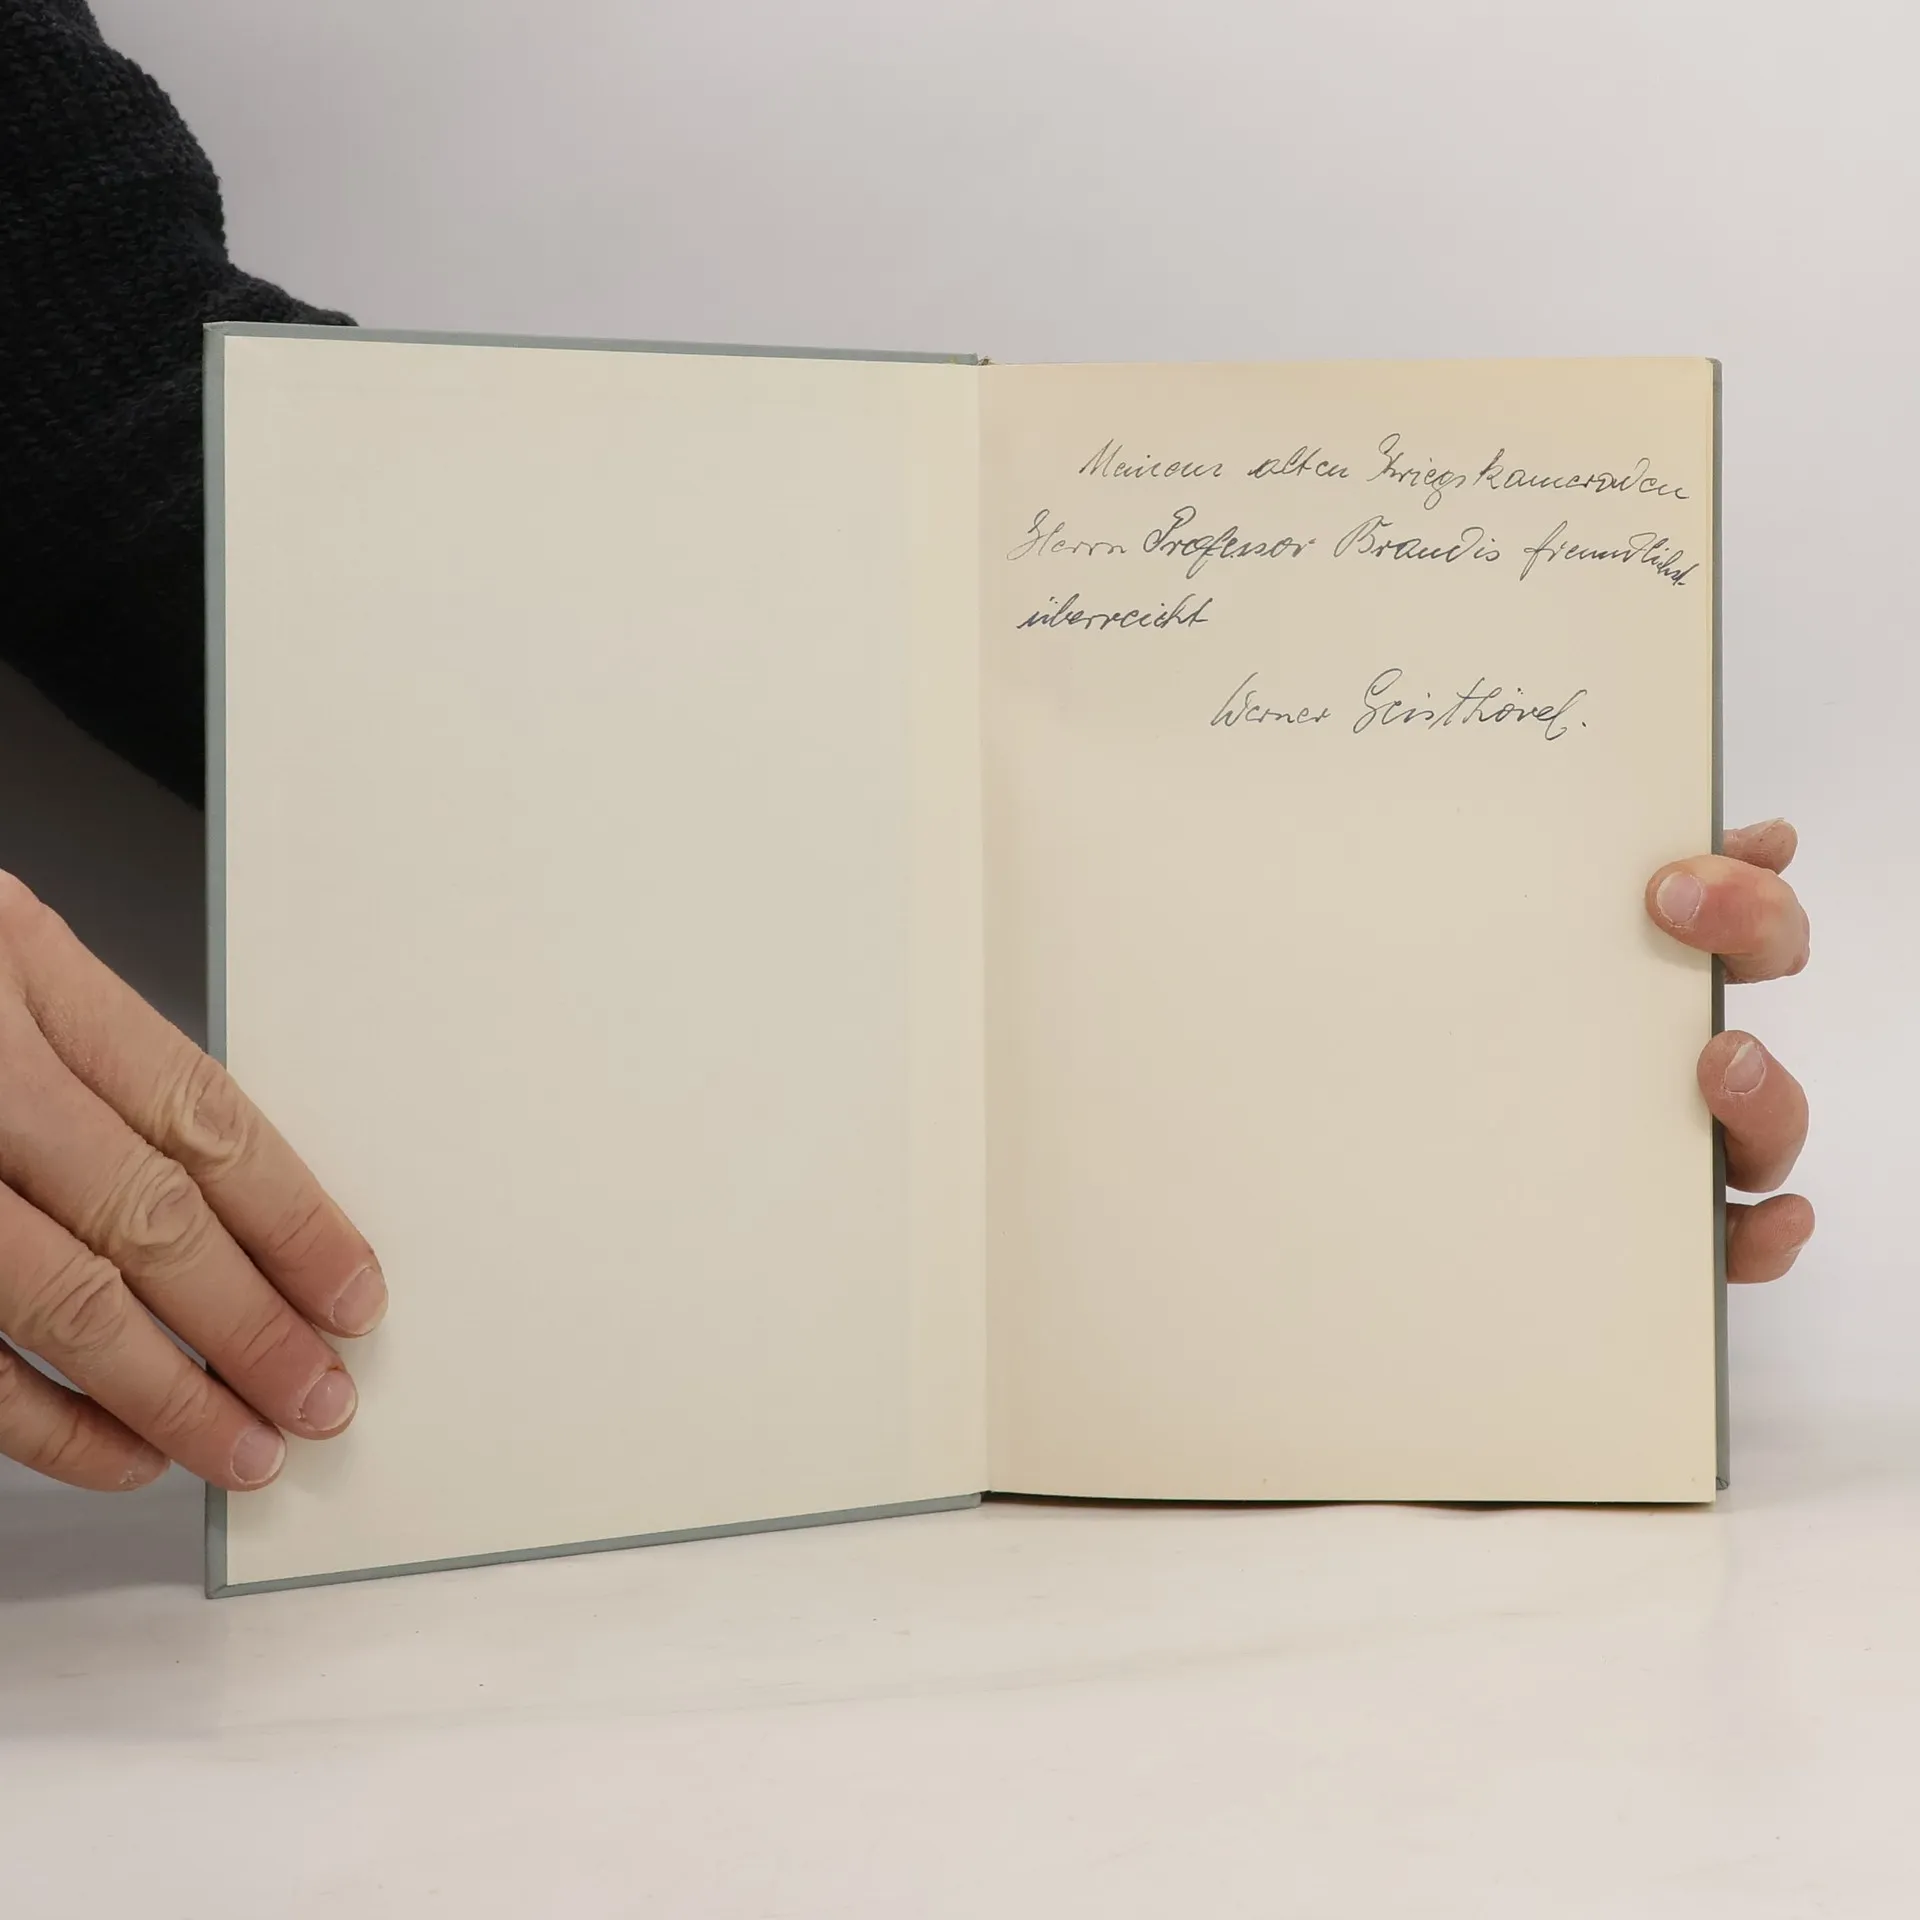 Meinem alten Kriegskameraden
Herrn Professor Brandis freundlichst
überreicht
Werner Geisthövel.